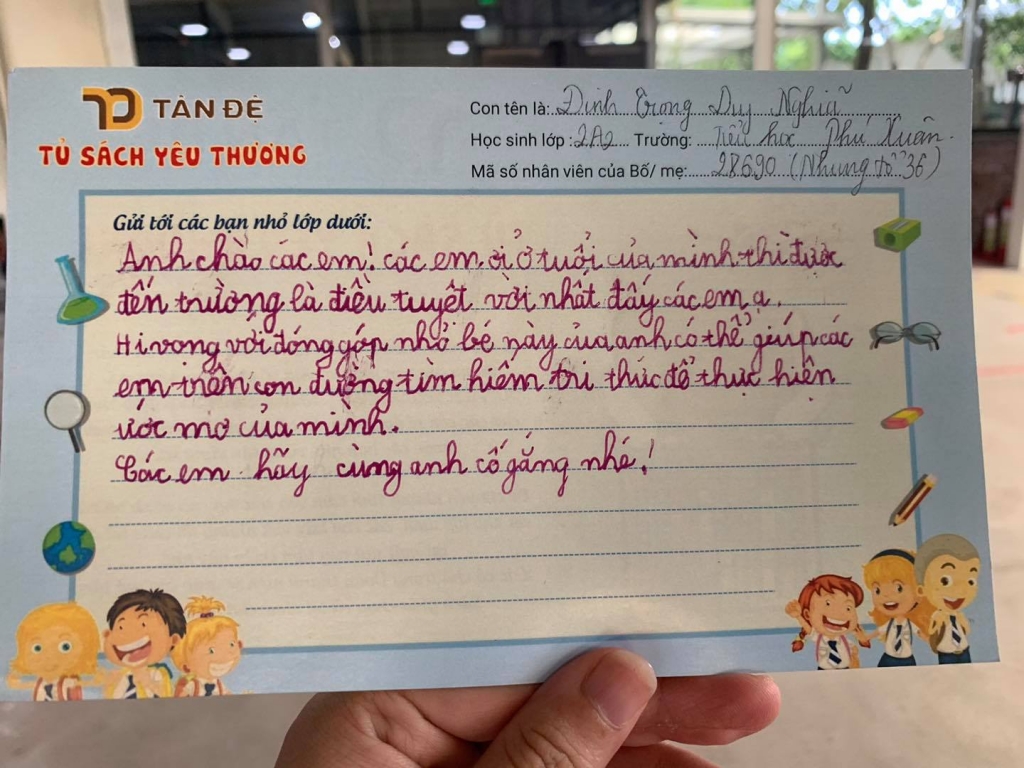 TÂN ĐỆ
TỦ SÁCH YÊU THƯƠNG
Con tên là: Đinh Trọng Duy Nghiã
Học sinh lớp: 2A2 Trường: Tiểu học Phú Xuân.
Mã số nhân viên của Bố/ mẹ: 28690 (Nhung tổ 36)
Gửi tới các bạn nhỏ lớp dưới:
Anh chào các em! các em ơi ở tuổi của mình thì được
đến trường là điều tuyệt vời nhất đấy các em ạ.
Hi vong với đóng góp nhỏ bé này của anh có thể giúp các
em trên con đường tìm hiểm tri thức để thực hiện
ước mơ của mình.
Các em hãy cùng anh cố gắng nhé!